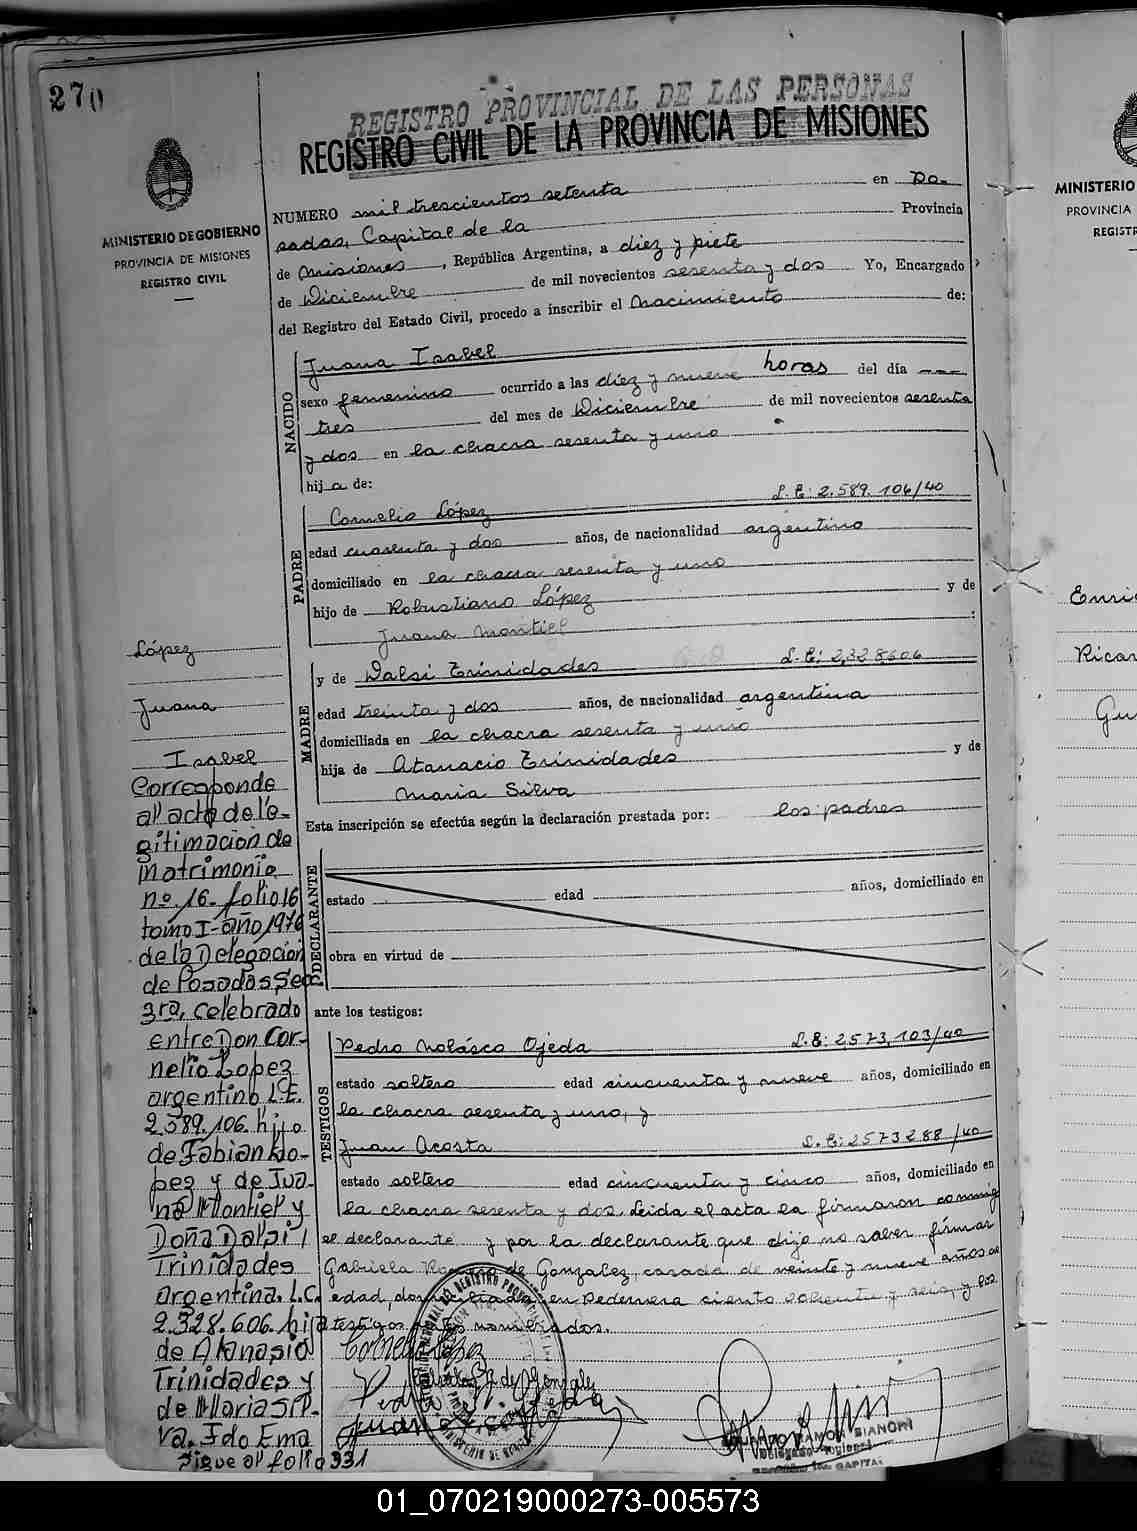 270
REGISTRO PROVINCIAL DE LAS PERSONAS
REGISTRO CIVIL DE LA PROVINCIA DE MISIONES
MINISTERIO DE GOBIERNO
PROVINCIA DE MISIONES
REGISTRO CIVIL
NUMERO mil trescientos setenta en Po-
sadas, Capital de la Provincia
de Misiones, República Argentina, a diez y siete
de Diciembre de mil novecientos sesenta y dos Yo, Encargado
del Registro del Estado Civil, procedo a inscribir el nacimiento de:
NACIDO
Juana Isabel
sexo femenino ocurrido a las diez y nueve horas del día
tres del mes de Diciembre de mil novecientos sesenta
y dos en la chacra sesenta y uno
hija de:
PADRE
Cornelio López L.E: 2.589.106/40
edad cuarenta y dos años, de nacionalidad argentino
domiciliado en la chacra sesenta y uno
hijo de Robustiano López y de
Juana Montiel :
MADRE
y de Dalsi Trinidades L.C: 2,328,606
edad treinta y dos años, de nacionalidad argentina
domiciliada en la chacra sesenta y uno
hija de Atanacio Trinidades y de
Maria Silva
Esta inscripción se efectúa según la declaración prestada por: los padres
DECLARANTE
estado edad años, domiciliado en
obra en virtud de
ante los testigos:
TESTIGOS
Pedro Nolásco Ojeda L.E: 2,573,103/40
estado soltero edad cincuenta y nueve años, domiciliado en
la chacra sesenta y uno, y
Juan Acosta L.E: 2573288/40
estado soltero edad cincuenta y cinco años, domiciliado en
la chacra sesenta y dos. Leida el acta la firmaron conmig
el declarante y por la declarante que dijo no saber firmar
Gabriela de Gonzalez, casada, de veinte y nueve años de
edad, en Pedernera ciento y seis, y los
testigos nombrados.
Cornelio López
de Gonzalez
Juan
RAMON BIANCHI
CAPITAL
López
Juana
Isabel
Corresponde
al acta de le-
gitimación de
Matrimonio
no. 16. folio 16
tomo I - año 1976
de la Delegación
de Posadas Sec
3ra, celebrado
entre Don Cor-
nelio Lopez
argentino L.E.
2.589.106. hijo
de Fabian Lo-
pez y de Jua-
na Montiel y
Doña Dalsi
Trinidades
argentina. L.C.
2.328.606 hija
de Atanasio
Trinidades y
de Maria Sil-
va. Fdo Ema
Sigue al folio 331
MINISTERIO
PROVINCIA
REGISTR
Enri
Ricar
Gu
01_070219000273-005573